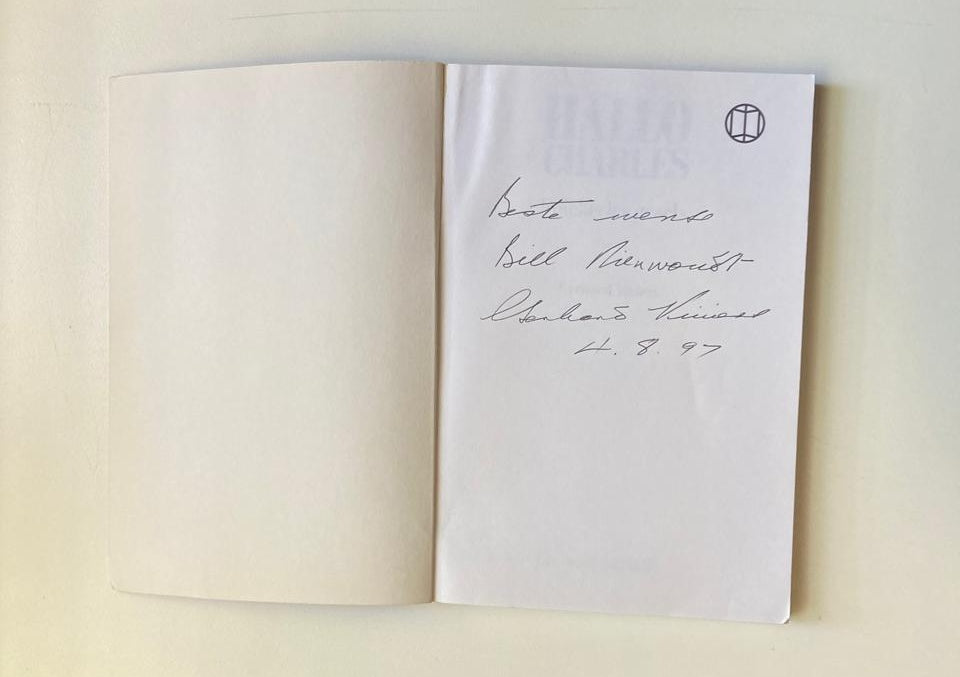 HALLO
CHARLES
Beste wense
Bill Nienwoudt
Gerhard Viviers
4.8.97